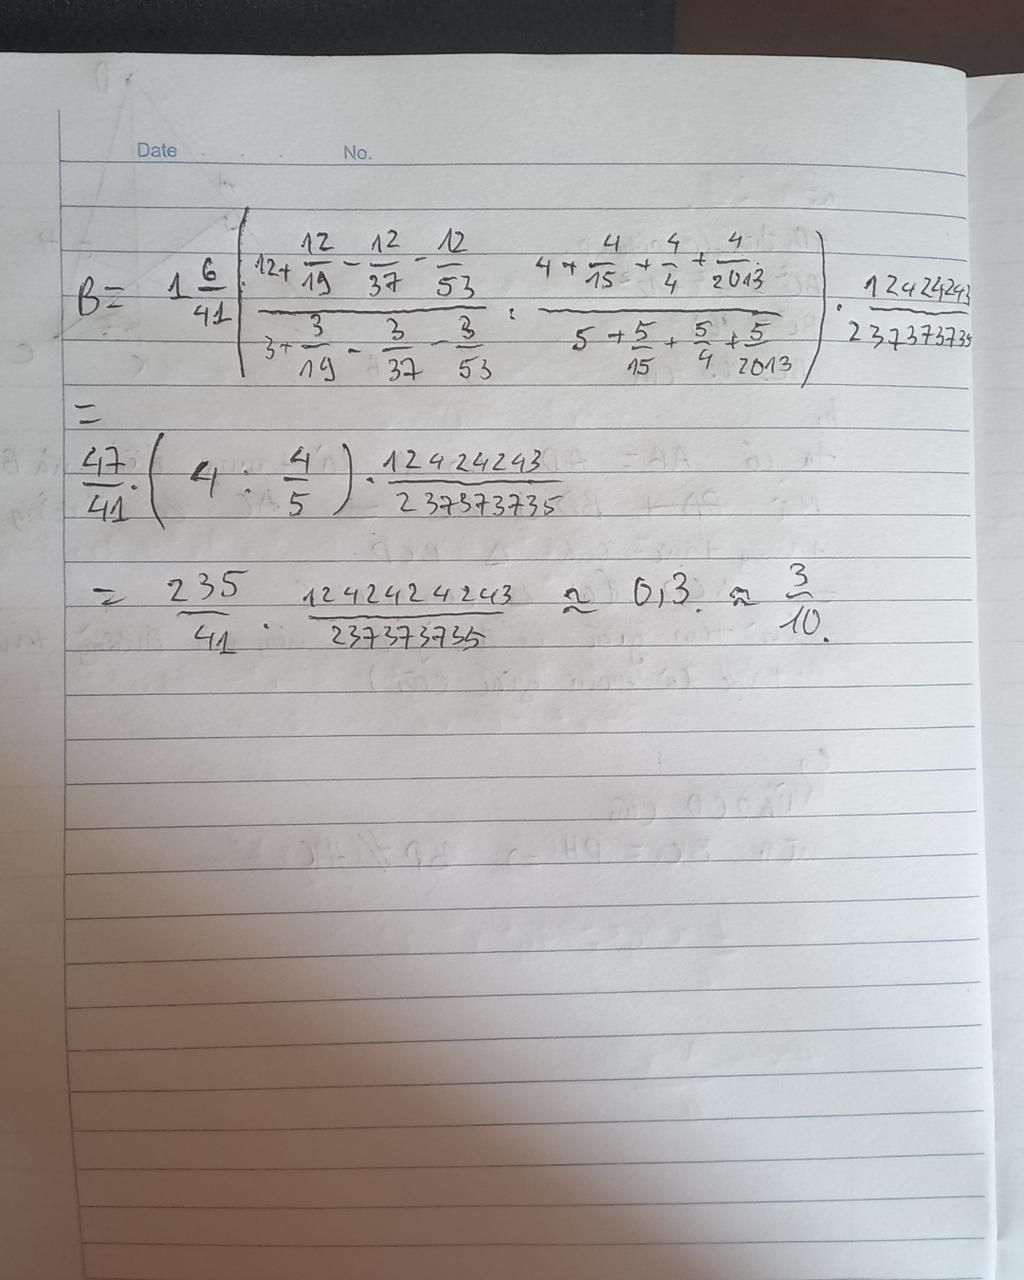 Date No.
B = 1 6/41 ( (12 + 12/19 - 12/37 - 12/53)/(3 + 3/19 - 3/37 - 3/53) : (4 + 4/15 + 4/4 + 4/2013)/(5 + 5/15 + 5/4 + 5/2013) ) . 12424243/237373735
=
47/41 . ( 4 : 4/5 ) . 12424243/237373735
= 235/41 . 1242424243/237373735 ≈ 0,3. ≈ 3/10.